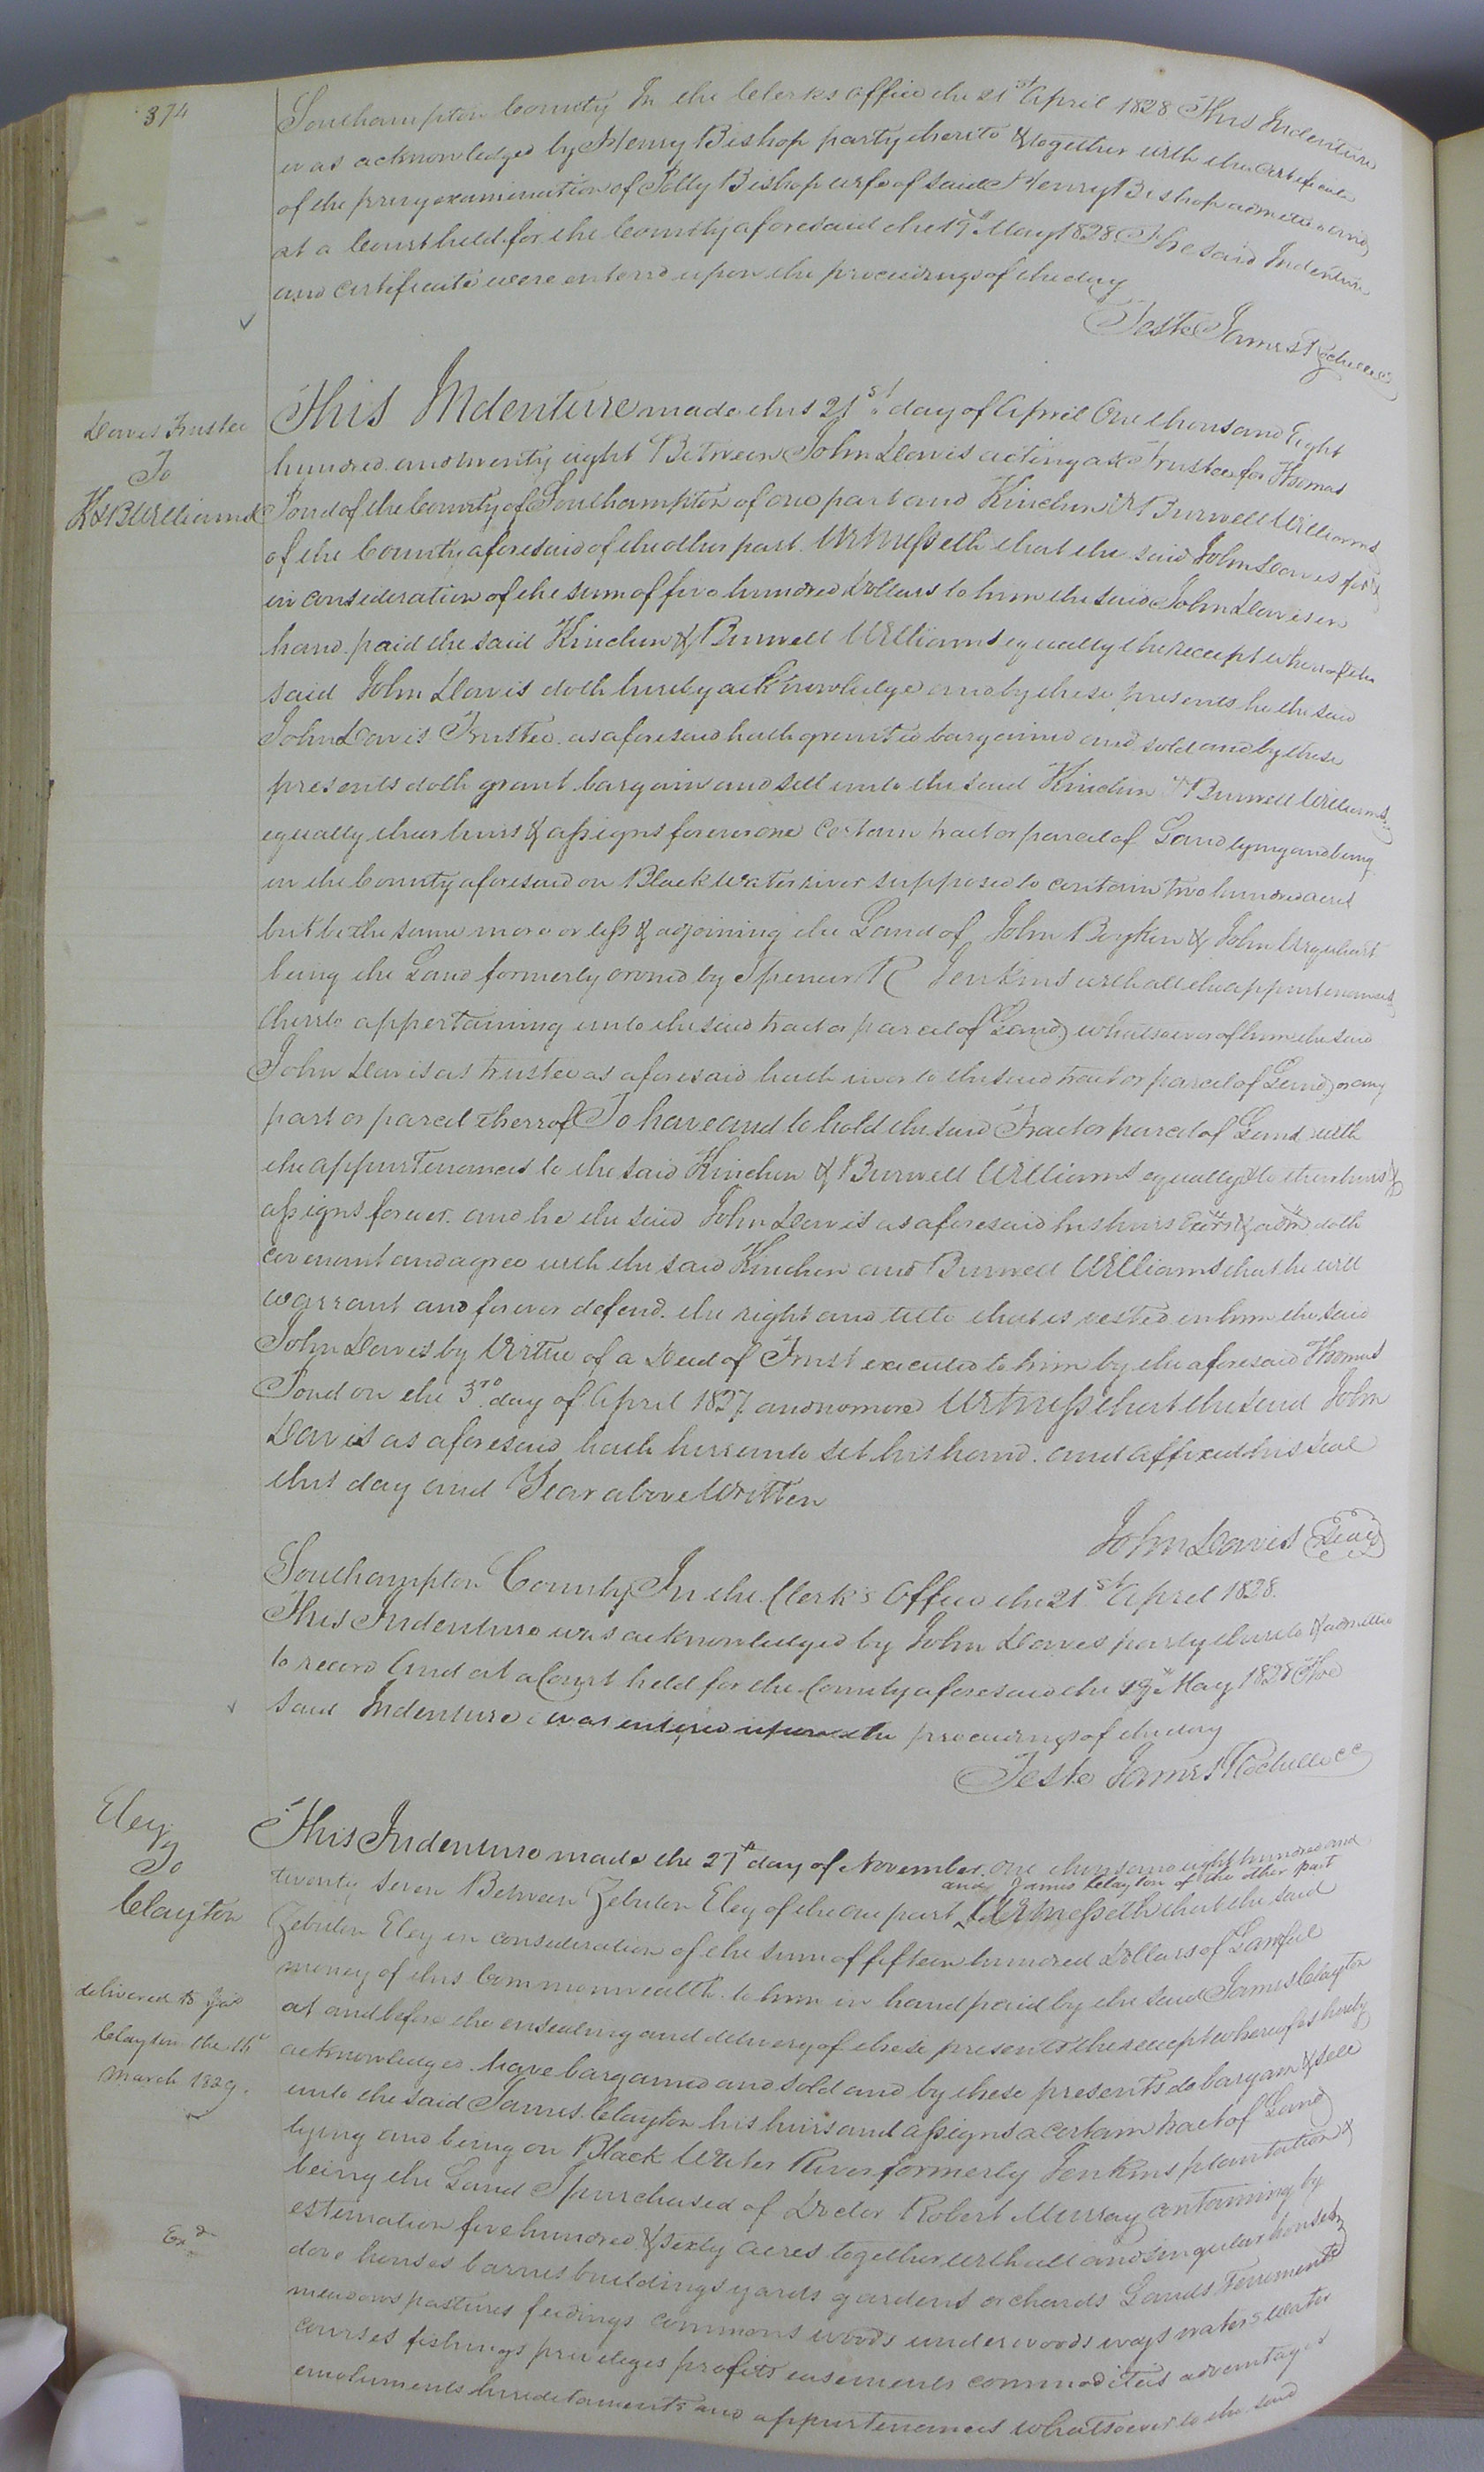 374
Southampton County In the Clerks office the 21st April 1828 This Indenture
was acknowledged by Henry Bishop party thereto & together with the certificate
of the privy examination of Polly Bishop wife of said Henry Bishop admitted and
at a Court held for the County aforesaid the 19th May 1828 The said Indenture
and certificate were entered upon the proceedings of the day
Teste James Rochelle cc
Davis Trustee
To
K & B Williams
This Indenture made this 21st day of April One thousand Eight
hundred and twenty eight Between John Davis acting as Trustee for Thomas
Pond of the County of Southampton of one part and Kinchen & Burwell Williams
of the County aforesaid of the other part. Witnesseth that the said John Davis for &
in consideration of the sum of five hundred Dollars to him the said John Davis in
hand paid the said Kinchen & Burwell Williams equally the receipt whereof the
said John Davis doth hereby acknowledge and by these presents he the said
John Davis Trustee as aforesaid hath granted bargained and sold and by these
presents doth grant bargain and sell unto the said Kinchen & Burwell Williams
equally their heirs & assigns forever one certain tract or parcel of Land lying and being
in the County aforesaid on Black water river supposed to contain two hundred acres
but be the same more or less & adjoining the Land of John Boykin & John Urquhart
being the Land formerly owned by Spencer R Jenkins with all the appurtenances
thereto appertaining unto the said tract or parcel of Land, whatsoever of him the said
John Davis as trustee as aforesaid hath in or to the said tract or parcel of Land, or any
part or parcel thereof To have and to hold the said Tract or parcel of Land with
the appurtenances to the said Kinchen & Burwell Williams equally & to their heirs &
assigns forever. and he the said John Davis as aforesaid his heirs Exors & adms doth
covenant and agree with the said Kinchen and Burwell Williams that he will
warrant and forever defend the right and title that is vested in him the said
John Davis by Virtue of a Deed of Trust executed to him by the aforesaid Thomas
Pond on the 3rd day of April 1827 and no more Witness that the said John
Davis as aforesaid hath hereunto set his hand. and affixed his seal
this day and Year above Written
John Davis Seal
Southampton County In the Clerk's Office the 21st April 1828.
This Indenture was acknowledged by John Davis party thereto & admitted
to record And at a Court held for the County aforesaid the 19th May 1828 The
said Indenture was entered upon the proceedings of the day
Teste James Rochelle cc
Eley
To
Clayton
delivered to Jas
Clayton the
March 1829.
Exd
This Indenture made the 27th day of November one thousand eight hundred and
twenty seven Between Zebulon Eley of the one part and James Clayton of the other part Witnesseth that the said
Zebulon Eley in consideration of the sum of fifteen hundred Dollars of Lawful
money of this Commonwealth to him in hand paid by the said James Clayton
at and before the ensealing and delivery of these presents the receipt whereof is hereby
acknowledged have bargained and sold and by these presents do bargain & sell
unto the said James Clayton his heirs and assigns a certain tract of Land
lying and being on Black Water River formerly Jenkins plantation &
being the Land I purchased of Doctor Robert Murray containing by
estimation five hundred & sixty acres together with all and singular houses
dove houses barns buildings yards gardens orchards Lands Tenements
meadows pastures feedings commons woods underwoods ways waters water
courses fishings privileges profits easements commodities advantages
emoluments hereditaments and appurtenances whatsoever to the said